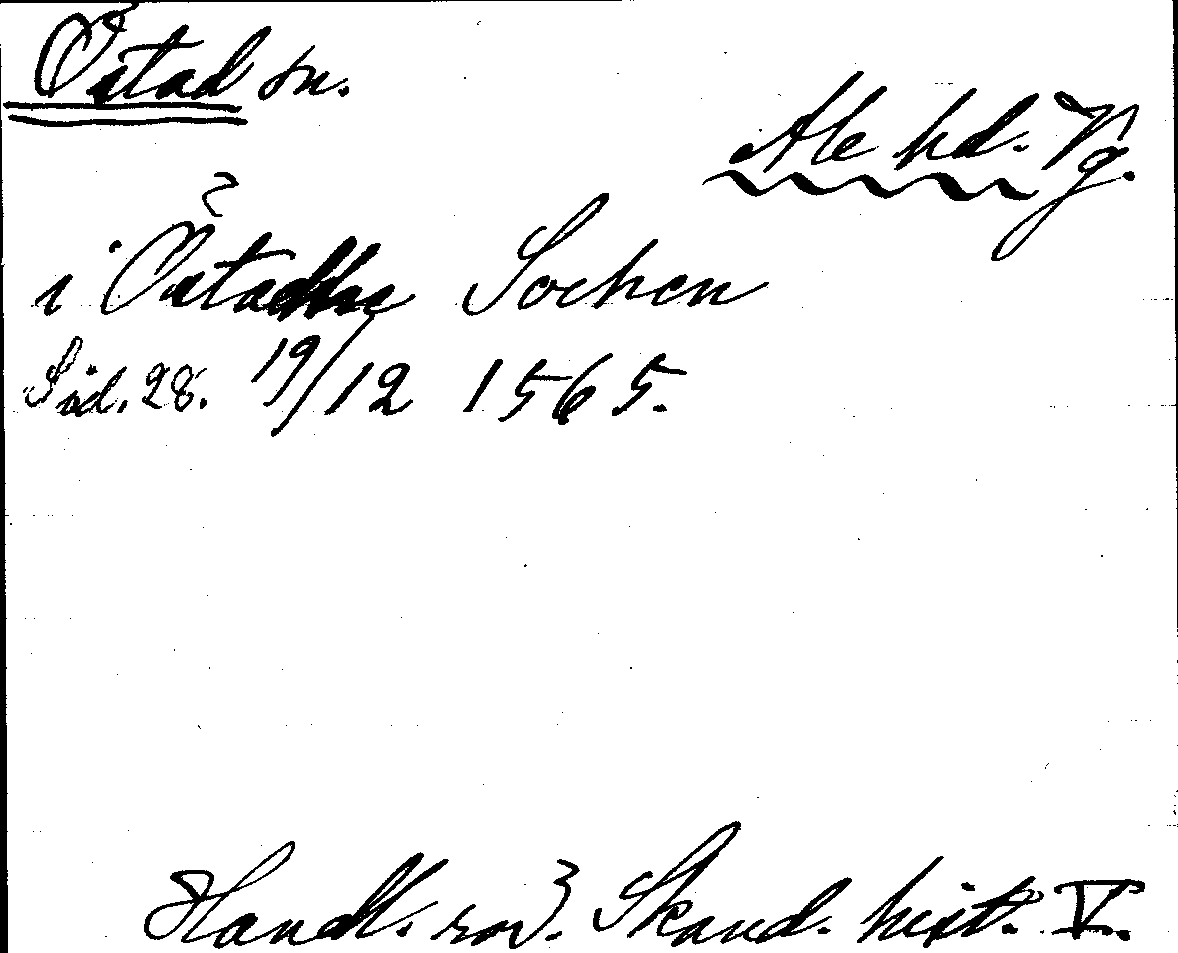 Östad sn.
Ale hd. Vg.
i Östadhe Sochen
Sid. 28. 19/12 1565.
Handl. rör. Skand. hist. V.